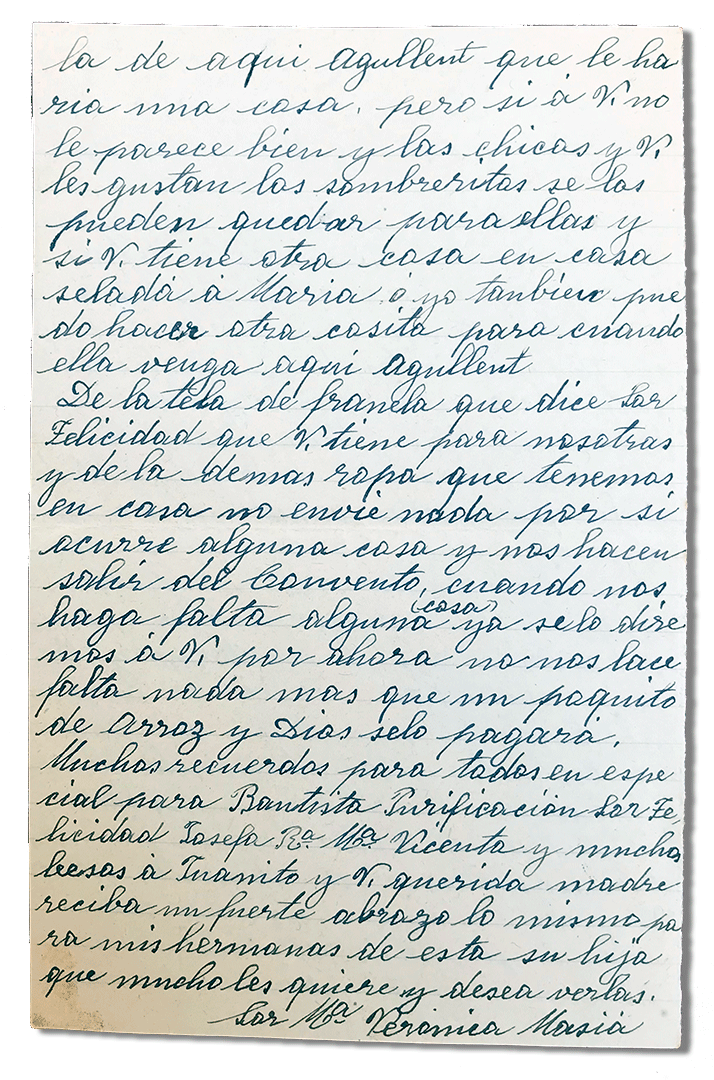 la de aqui Agullent que le ha
ria una cosa. pero si á V. no
le parece bien y las chicas y V.
les gustan los sombreritos se los
pueden quedar para ellas y
si V. tiene otra cosa en casa
seladá á Maria ó yo tanbien pue
do hacer otra cosita para cuando
ella venga aqui Agullent
De la tela de franela que dice Sor
Felicidad que V. tiene para nosotras
y de la demas ropa que tenemos
en casa no envie nada por si
ocurre alguna cosa y nos hacen
salir del Convento, cuando nos
haga falta alguna (cosa) ya selo dire
mos á V. por ahora no nos hace
falta nada mas que un poquito
de Arroz y Dios selo pagará.
Muchos recuerdos para todos en espe
cial para Bautista Purificación Sor Fe,
licidad Josefa Rª Mª Vicenta y muchos
besos á Juanito y V. querida madre
reciba un fuerte abrazo lo mismo pa
ra mis hermanas de esta su hija
que mucho les quiere y desea verlas.
Sor Mª Verónica Masiá